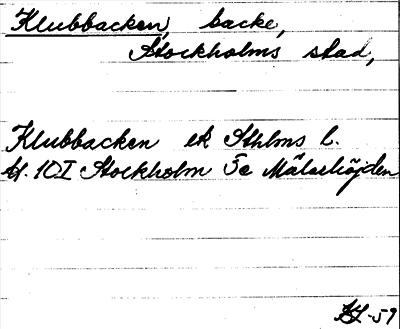 Klubbacken, backe,
Stockholms stad,
Klubbacken ek Sthlms l.
bl. 10I Stockholm 5e Mälarhöjden
-59